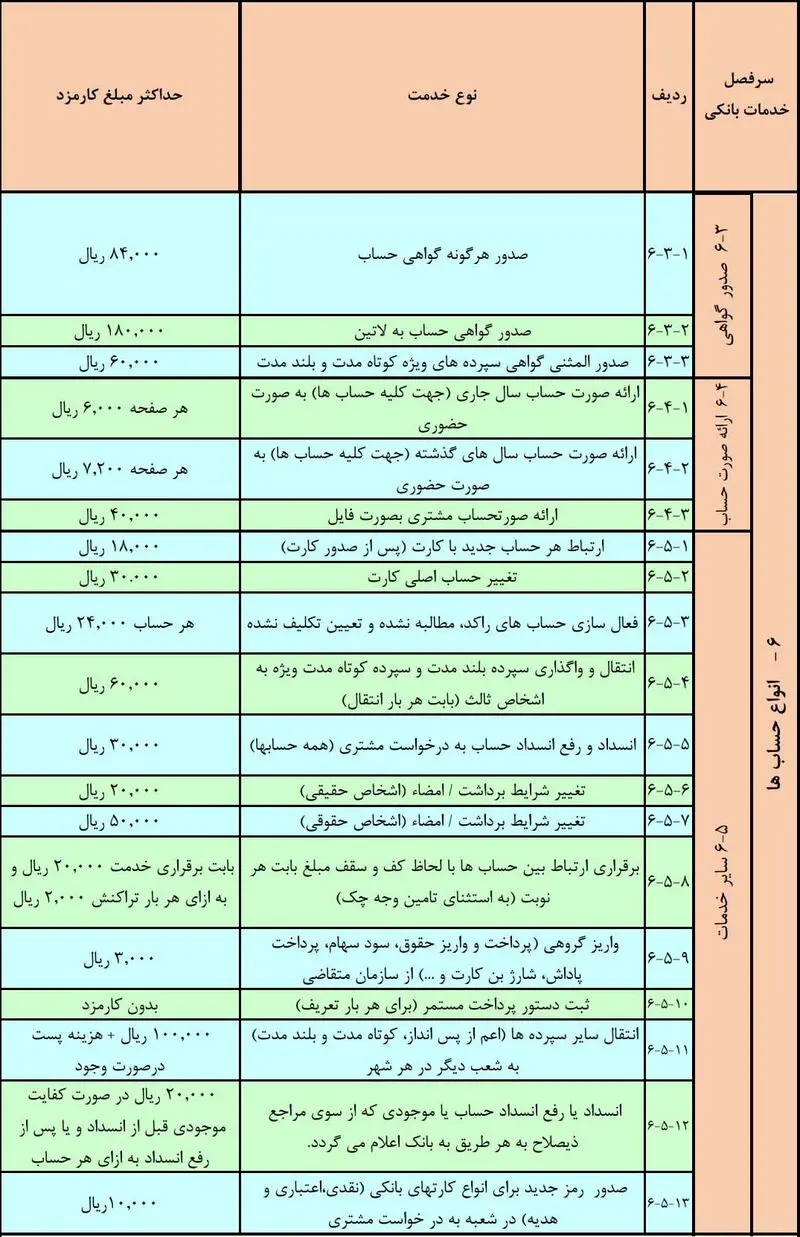 سرفصل
خدمات بانکی
ردیف
نوع خدمت
حداکثر مبلغ کارمزد
۶- انواع حساب ها
۶-۳ صدور گواهی
۶-۳-۱
صدور هرگونه گواهی حساب
۸۴,۰۰۰ ریال
۶-۳-۲
صدور گواهی حساب به لاتین
۱۸۰,۰۰۰ ریال
۶-۳-۳
صدور المثنی گواهی سپرده های ویژه کوتاه مدت و بلند مدت
۶۰,۰۰۰ ریال
۶-۴ ارائه صورت حساب
۶-۴-۱
ارائه صورت حساب سال جاری (جهت کلیه حساب ها) به صورت
حضوری
هر صفحه ۶,۰۰۰ ریال
۶-۴-۲
ارائه صورت حساب سال های گذشته (جهت کلیه حساب ها) به
صورت حضوری
هر صفحه ۷,۲۰۰ ریال
۶-۴-۳
ارائه صورتحساب مشتری بصورت فایل
۴۰,۰۰۰ ریال
۶-۵ سایر خدمات
۶-۵-۱
ارتباط هر حساب جدید با کارت (پس از صدور کارت)
۱۸,۰۰۰ ریال
۶-۵-۲
تغییر حساب اصلی کارت
۳۰.۰۰۰ ریال
۶-۵-۳
فعال سازی حساب های راکد، مطالبه نشده و تعیین تکلیف نشده
هر حساب ۲۴,۰۰۰ ریال
۶-۵-۴
انتقال و واگذاری سپرده بلند مدت و سپرده کوتاه مدت ویژه به
اشخاص ثالث (بابت هر بار انتقال)
۶۰,۰۰۰ ریال
۶-۵-۵
انسداد و رفع انسداد حساب به درخواست مشتری (همه حسابها)
۳۰,۰۰۰ ریال
۶-۵-۶
تغییر شرایط برداشت / امضاء (اشخاص حقیقی)
۲۰,۰۰۰ ریال
۶-۵-۷
تغییر شرایط برداشت / امضاء (اشخاص حقوقی)
۵۰,۰۰۰ ریال
۶-۵-۸
برقراری ارتباط بین حساب ها با لحاظ کف و سقف مبلغ بابت هر
نوبت (به استثنای تامین وجه چک)
بابت برقراری خدمت ۲۰,۰۰۰ ریال و
به ازای هر بار تراکنش ۲,۰۰۰ ریال
۶-۵-۹
واریز گروهی (پرداخت و واریز حقوق، سود سهام، پرداخت
پاداش، شارژ بن کارت و ...) از سازمان متقاضی
۳,۰۰۰ ریال
۶-۵-۱۰
ثبت دستور پرداخت مستمر (برای هر بار تعریف)
بدون کارمزد
۶-۵-۱۱
انتقال سایر سپرده ها (اعم از پس انداز، کوتاه مدت و بلند مدت)
به شعب دیگر در هر شهر
۱۰۰,۰۰۰ ریال + هزینه پست
درصورت وجود
۶-۵-۱۲
انسداد یا رفع انسداد حساب یا موجودی که از سوی مراجع
ذیصلاح به هر طریق به بانک اعلام می گردد.
۲۰,۰۰۰ ریال در صورت کفایت
موجودی قبل از انسداد و یا پس از
رفع انسداد به ازای هر حساب
۶-۵-۱۳
صدور رمز جدید برای انواع کارتهای بانکی (نقدی،اعتباری و
هدیه) در شعبه به در خواست مشتری
۱۰,۰۰۰ریال